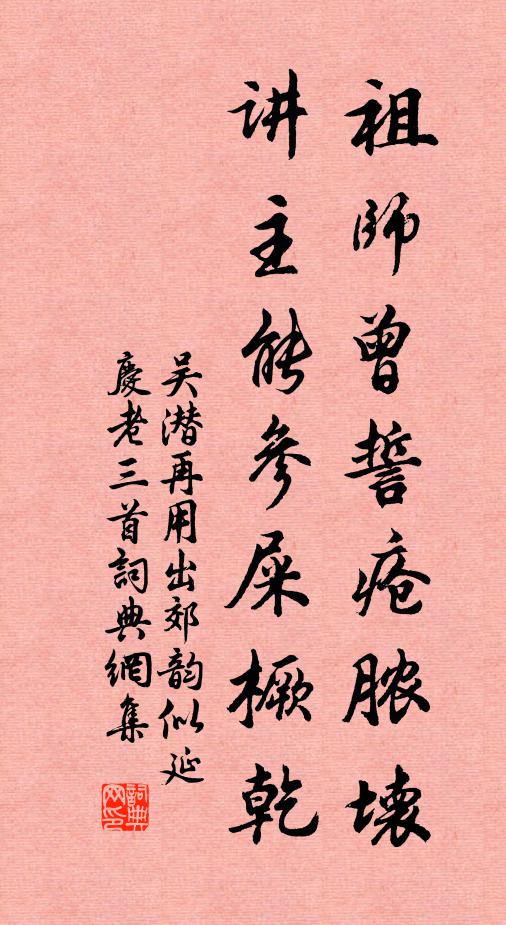 祖師曾誓疮脓壊
讲主能參屎橛乾
吴潜再用出郊韵似延
慶老三首詞典網集
詞典网印